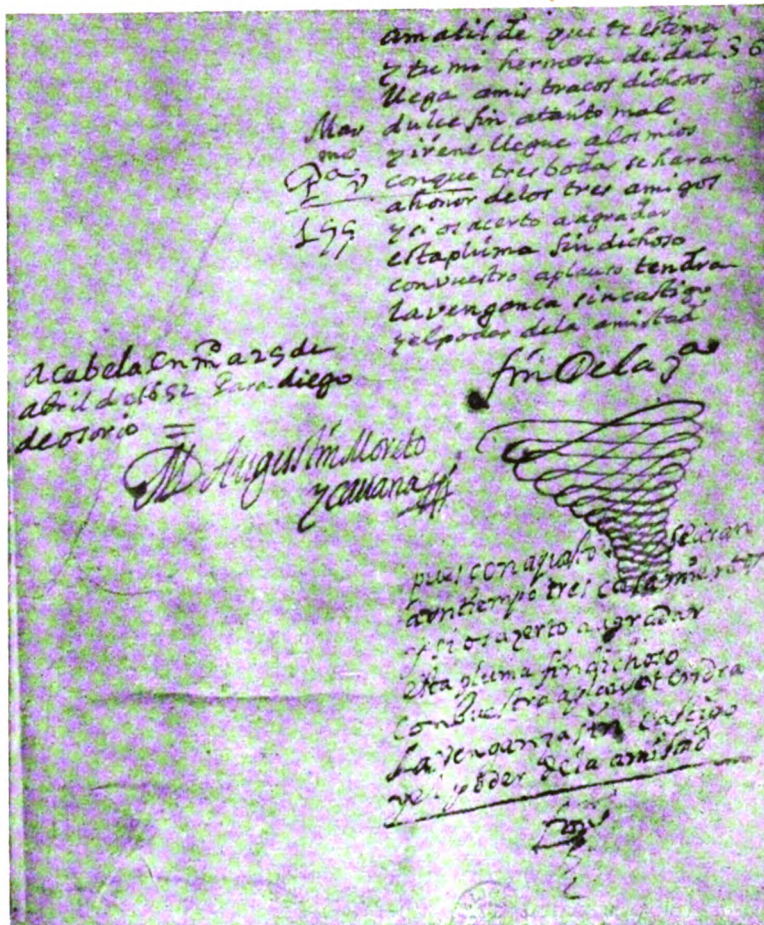 amatilde que te estima
y tu mi hermosa deidad 36
llega amis braços dichosos
dulce fin atanto mal
y irene llegue alos mios
conque tres bodas se haran
a honor delos tres amigos
y si os acerto a agradar
esta pluma fin dichoso
con vuestro aplauso tendra
la vengança sin castigo
y el poder dela amistad
fin De la 3ª
acabela en mᵈ a 25 de
abril de 1652 Para diego
de osorio
Augustin Moreto
y cavana
pues con aqueso se iran
aun tiempo tres casamientos
y si os azerto a agradar
esta pluma fin dichoso
con buestro aplauso tendra
La venganza sin castigo
y el poder de la amistad